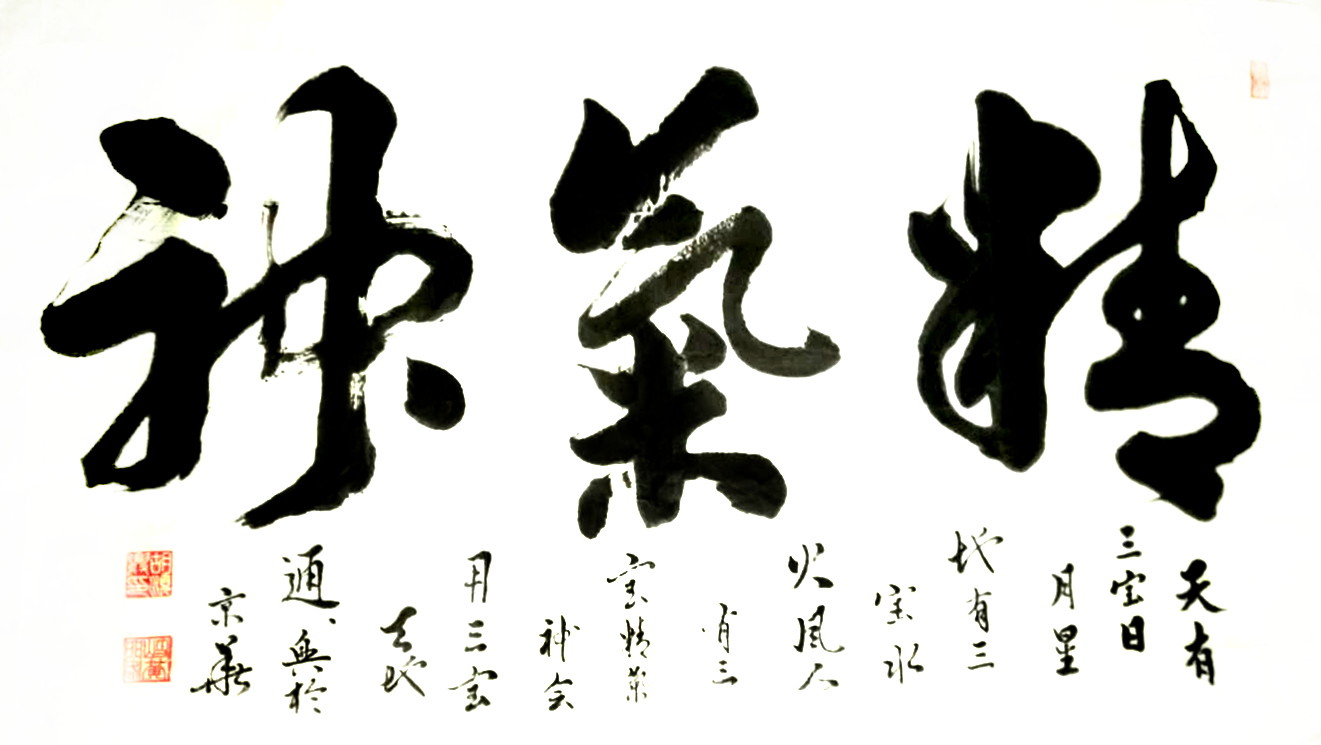 精氣神
天有
三宝日
月星
地有三
宝水
火風人
有三
宝精氣
神会
用三宝
天地
通、於
京華